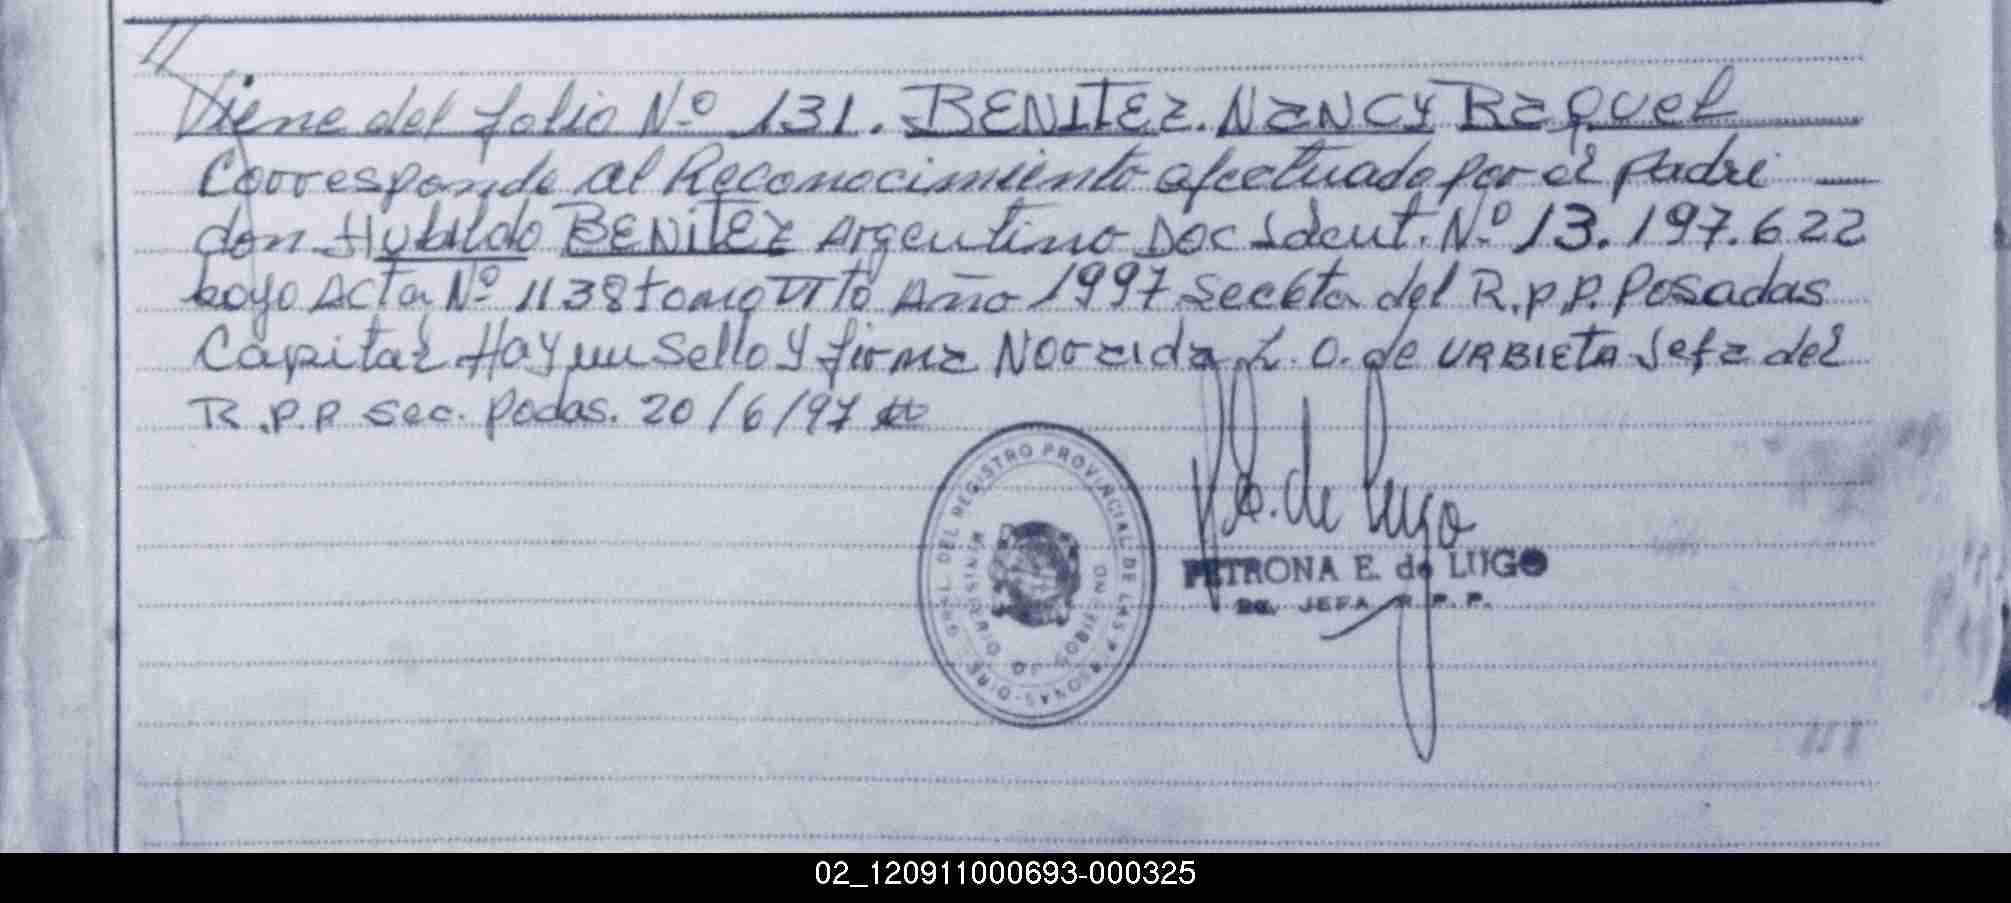 //
Viene del folio Nº 131. BENITEZ. NANCY RAQUEL
Corresponde al Reconocimiento efectuado por el padre
don Hubildo BENITEZ Argentino Doc Ident. Nº 13.197.622
Acta Nº 1138 tomo Año 1997 del R.p.p. Posadas
Capital Hay un Sello y firma L. O. de URBIETA Jefa del
R.p.p sec. podas. 20/6/97
DEL REGISTRO PROVINCIAL DE LAS PERSONAS - DIREC. GRAL.
MINISTERIO DE GOBIERNO
E. de Lugo
PETRONA E. de LUGO
JEFA R.P.P.
02_120911000693-000325